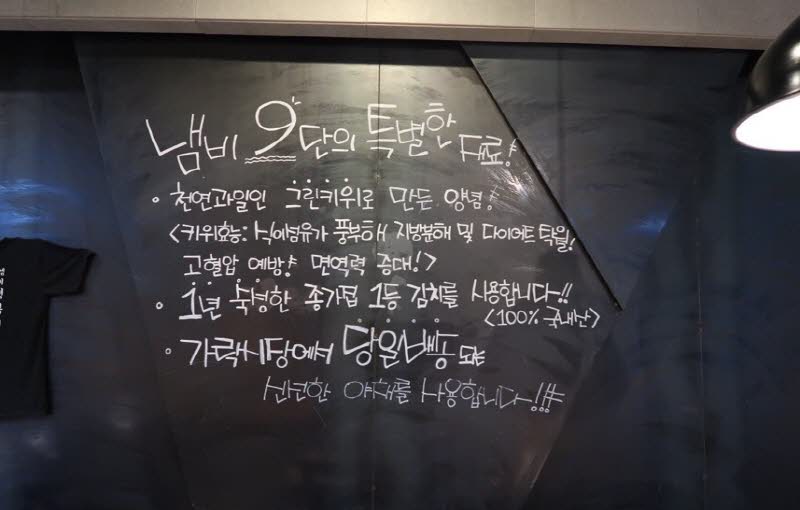 냄비 9단의 특별한 재료!
• 천연과일인 그린키위로 만든 양념!
<키위효능: 식이섬유가 풍부해 지방분해 및 다이어트 탁월!
고혈압 예방! 면역력 증대!>
• 1년 숙성한 종가집 1등 김치를 사용합니다~!!
<100% 국내산>
• 가락시장에서 당일배송 되는
신선한 야채를 사용합니다~!!!